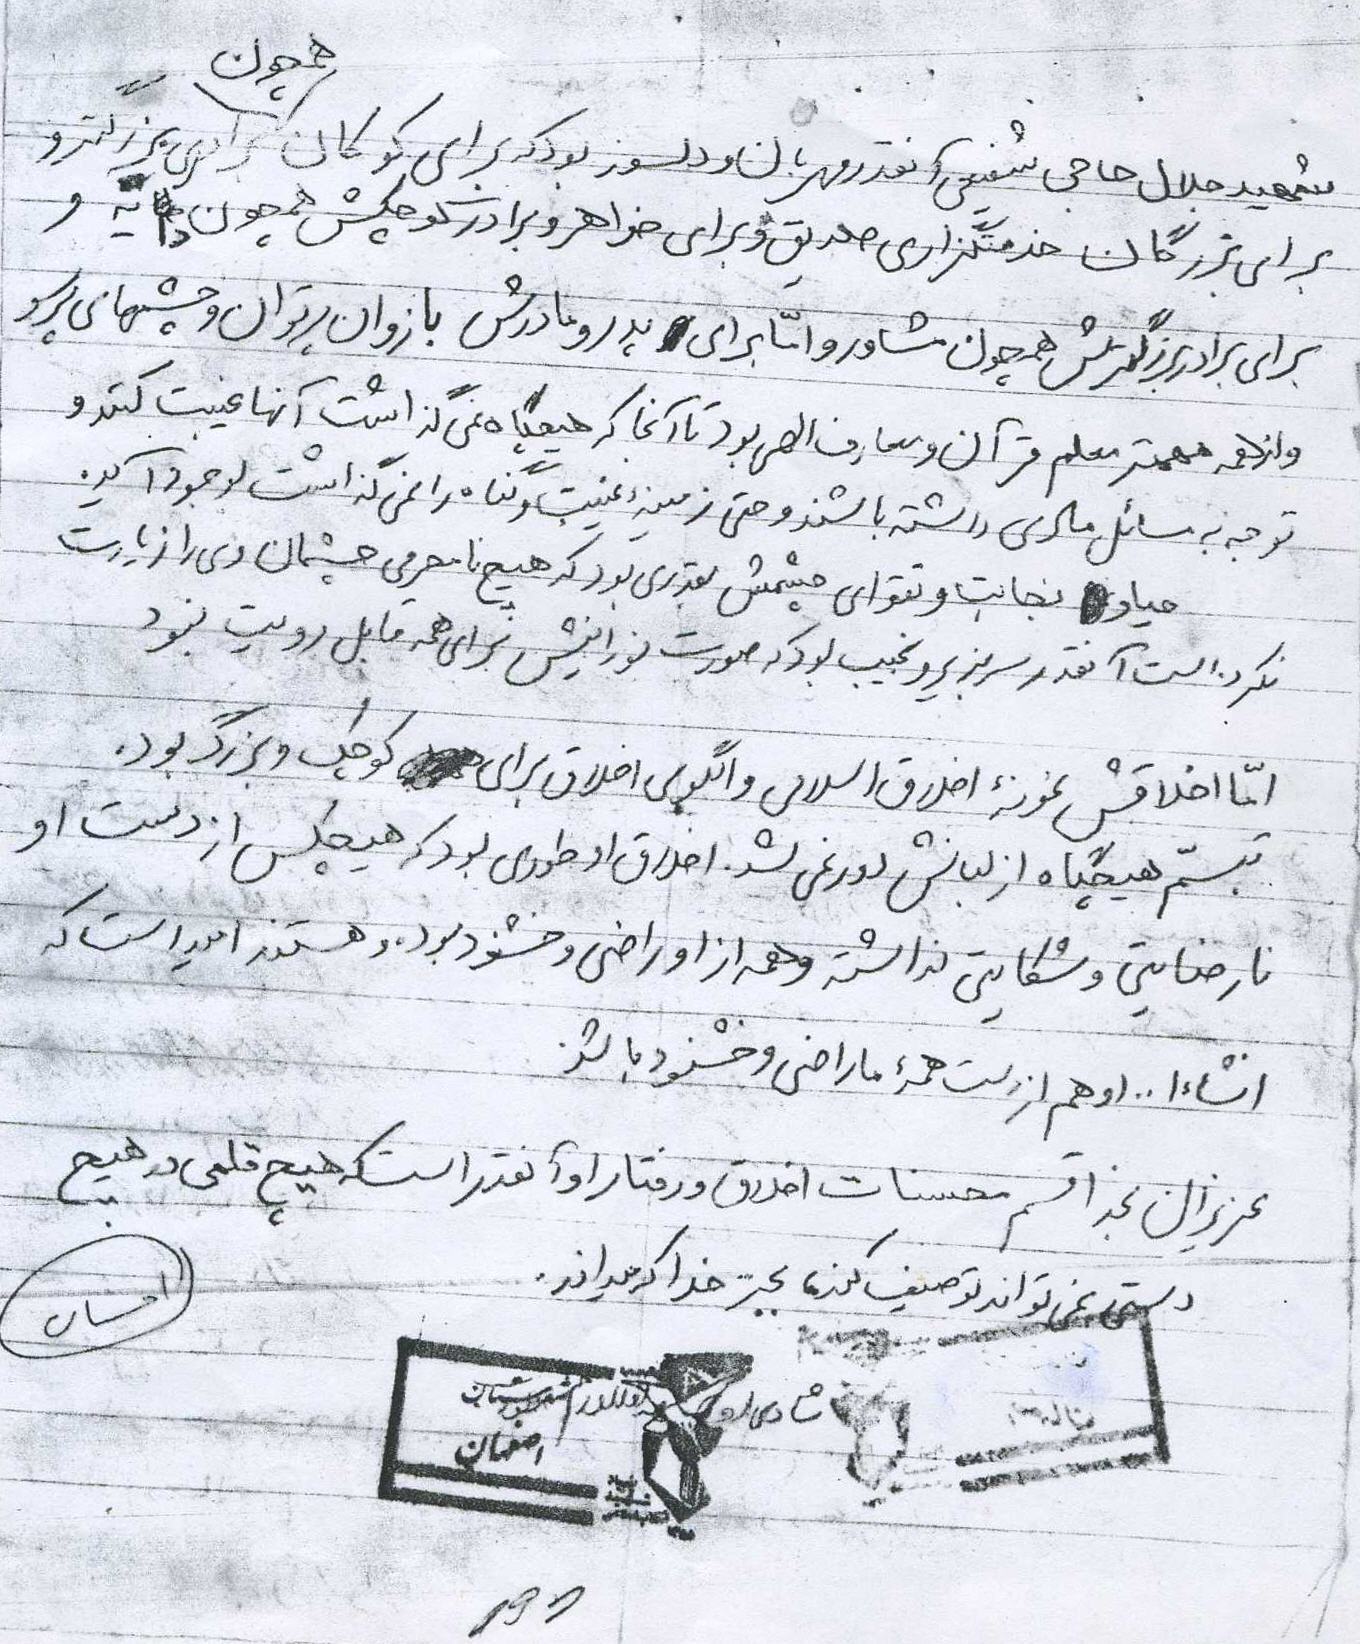 همچون
شهید جلال حاجی شفیعی آنقدر مهربان و دلسوز بود که برای کودکان برادری بزرگتر و
برای بزرگان خدمتگزاری صدیق و برای خواهر و برادر کوچکش همچون دایه و
برای برادر بزرگترش همچون مشاور و امّا برای پدر و مادرش بازوان پرتوان و چشمهای پرسو
و از همه مهمتر معلم قرآن و معارف الهی بود تا آنجا که هیچگاه نمی گذاشت آنها غیبت کنند و
توجه به مسائل مادی داشته باشند و حتی زمینهٔ غیبت و گناه را نمی گذاشت بوجود آید.
حیا و نجابت و تقوای چشمش بقدری بود که هیچ نامحرمی چشمان وی را زیارت
نکرده است آنقدر سربزیر و نجیب بود که صورت نورانیش برای همه قابل رویت نبود
امّا اخلاقش نمونهٔ اخلاق اسلامی و الگوی اخلاق برای کوچک و بزرگ بود.
تبسّم هیچگاه از لبانش دور نمی شد. اخلاق او طوری بود که هیچکس از دست او
نارضایتی و شکایتی نداشته و همه از او راضی و خشنود بوده و هستند امید است که
انشاءا.. او هم از دست همهٔ ما راضی و خشنود باشد.
عزیزان بخدا قسم محسنات اخلاق و رفتار او آنقدر است که هیچ قلمی در هیچ
دستی نمی تواند توصیف کند، بجز خدا که میداند.
احسان
شهرستان
اصفهان